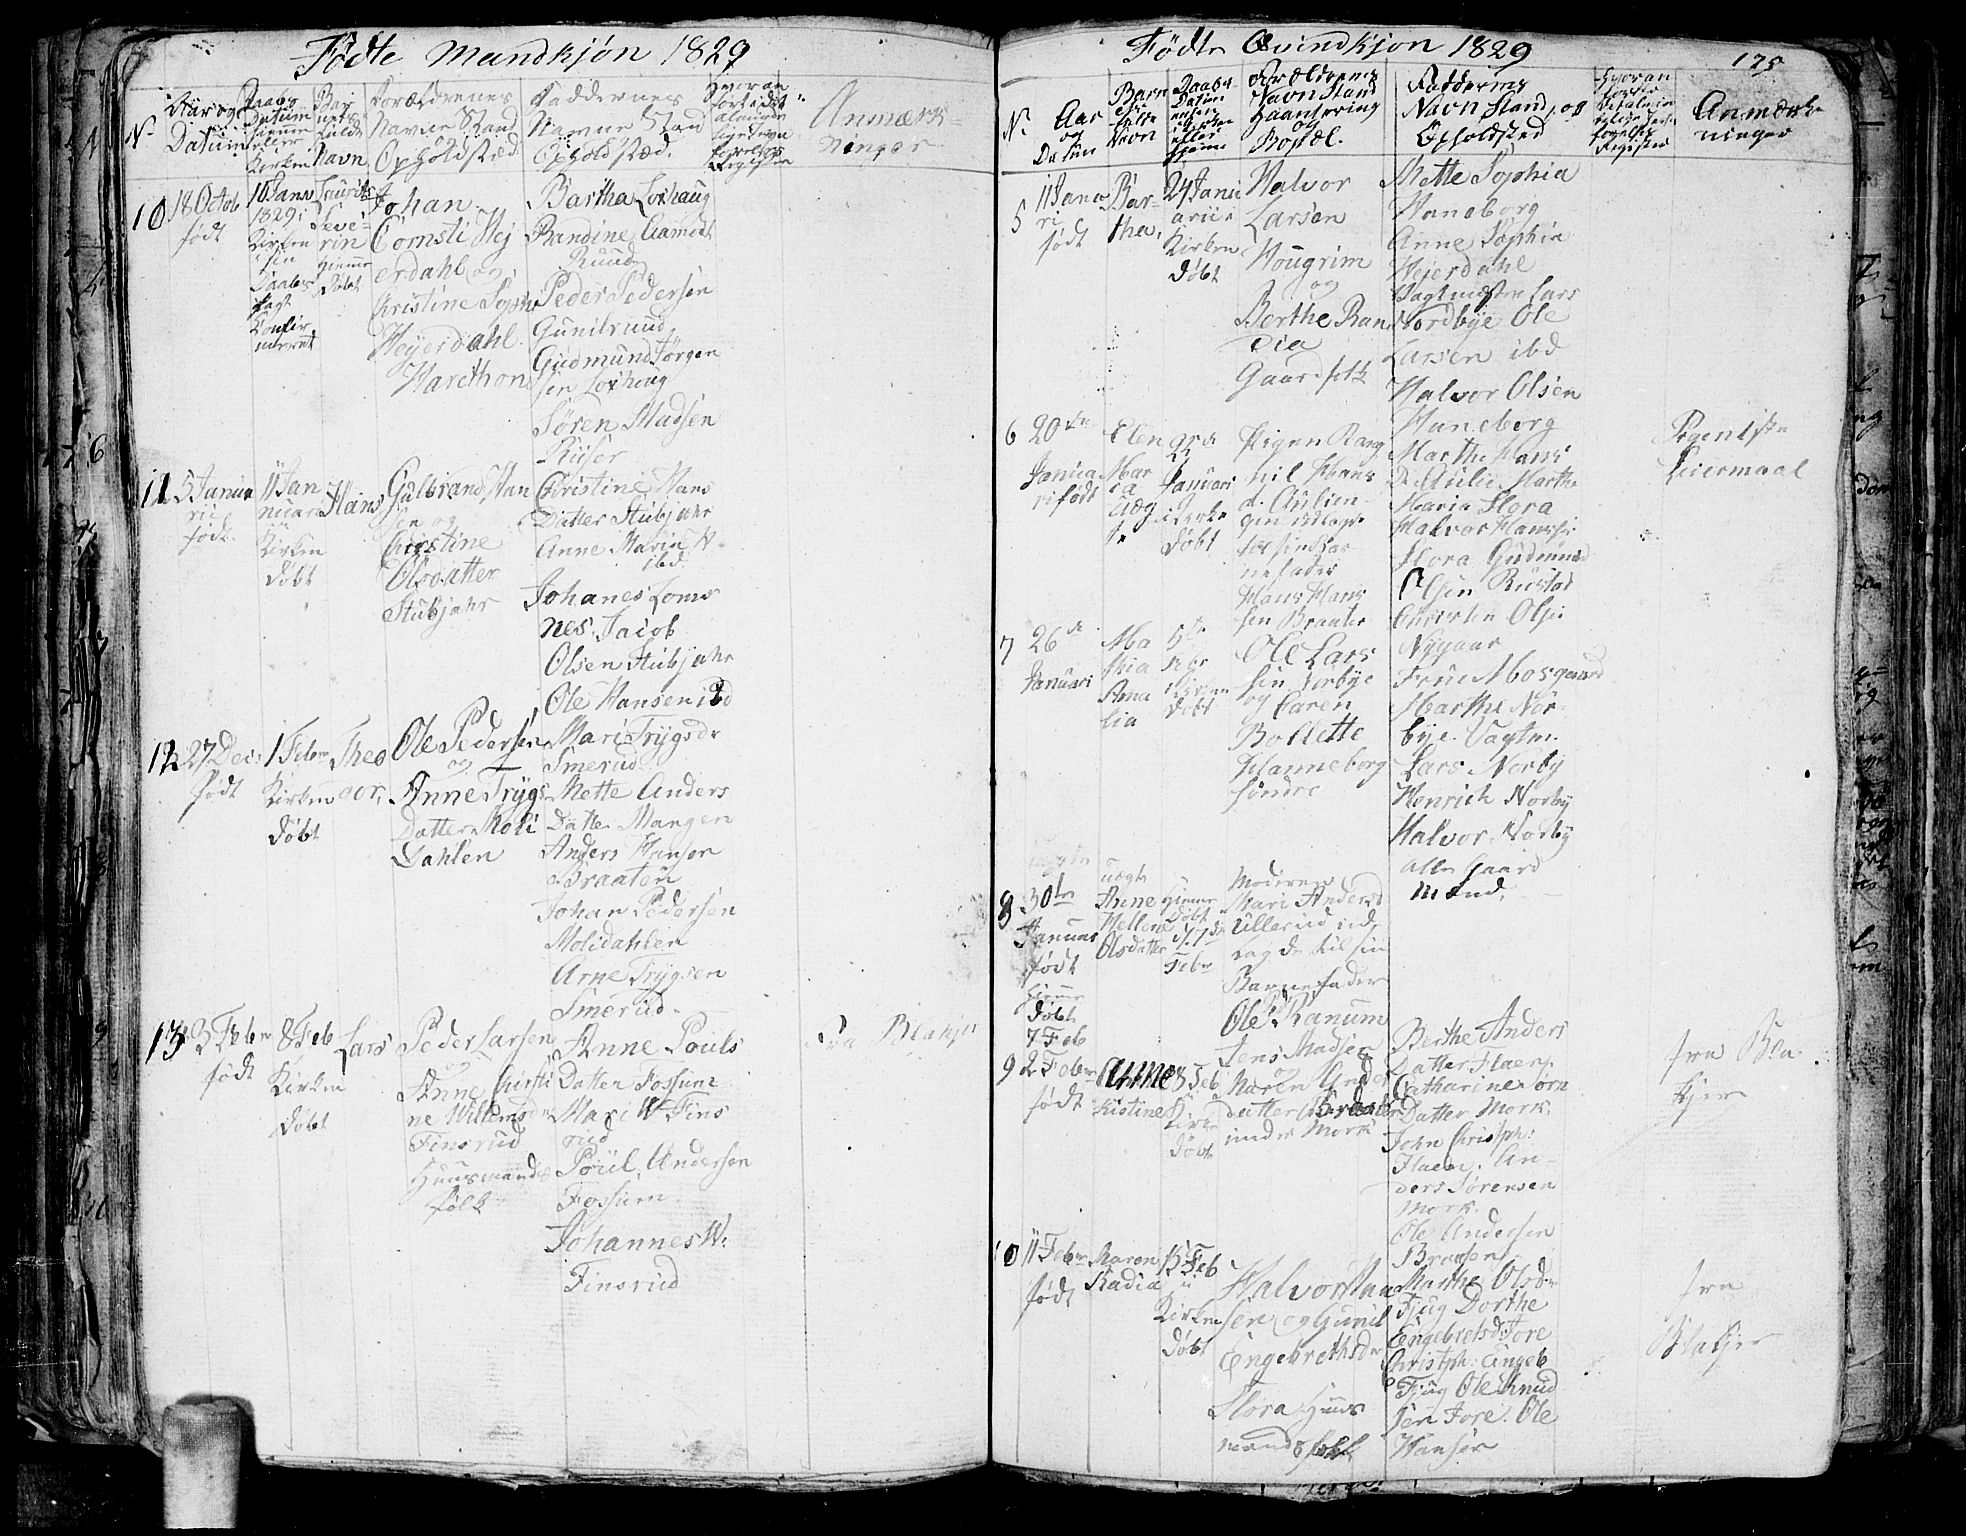 Födte Mandkjön 1829
N.
Aar og
Datum
Daabs
Datum
hiemme
eller
Kirken
Bar
nets
fulde
Navn
Foræledrenes
Navne Stand
Opholdsted
Faddernes
Navne Stand
Opholdsted.
Anmærk-
ninger
10
18 Octob
født
10 Janu
1829 i
Kirken
Daabs
Pagt
Confir
meret
Laurits
Seve-
rin
hiemme
døbt
Johan
Cornsti Hej
erdahl og
Christine Sophie
Heyerdahl
Harethon
Bartha Loxhaug
Randine Aamodt
Ruud
Peder Pedersen
Gunilruud
Gudmund Jörgen
sen Loxhoug
Sören Madsen
Riiser
11
5 Janua
rii
født
11 Jan
nuarii
Kirken
döbt
Hans
Gulbrand Han
sen og
Christine
Olsdatter
Stubjahr
Christine Hans
Datter Stubjahr
Anne Maria H.
ibd.
Johanes Loms
nes. Jacob
Olsen Stubjahr
Ole Hansen ibd
12
27 Dec:
født
1 Febr
Kirken
døbt
Theo
dor,
Ole Pedersen
og
Anne Trygs
Datter Moli
Dahlen
Mari Trygsdr
Smerud
Mette Anders
Datter Mangen
Anders Hansen
Braaten
Johan Pedersen
Molidahlen
Arne Trygsen
Smerud.
13
3 Febr
født
8 Feb
Kirken
døbt
Lars
Peder Larsen
og
Anne Christi
ne Willemsdr
Finsrud
Huusmands
folk
Anne Pouls
Datter Fossum
Mari W. Fins
rud
Poul Andersen
Fossum
Johannes W.
Finsrud
fra Blakjer
Födte Qvindkjon 1829
175
N.
Aar
og
Datum
Barn
ets
fulde
Navn
Daabs
Datum
enten
i Kirken
eller
hjemme
Forældrenes
Navn Stand
Haantering
og
Bopæl.
Faddernes
Navn Stand, og
Opholdsted
Anmærk-
ninger
5
11 Janua
ri
født
Bar-
tha,
24 Janu
arii
Kirken
døbt
Halvor
Larsen
Hougrim
og
Berthe Ran
dia
Gaardfolk
Mette Sophia
Hanneborg
Anne Sophia
Heyerdahl
Vagtmester Lars
Nordbye Ole
Larsen ibd
Halvor Olsen
Haneborg
6
20de
Janua
ri født
Elen
Mar
ia
uæg
te
25de
Januari
i Kirke
døbt
Pigen Rang
nil Hans
d. Aulien
gen udlagde
for sin Bar
nefader
Hans Hans
sen Braaten
Marthe Hans
Dr. Aulie Marthe
Maria Flora
Halvor Hansen
Flora Gudmund
Olsen Rustad
Christen Olsen
Nygaar
Pigens 1ste
Leiermaal
7
26de
Januari
Ma
thia
Ama
lia
5te
Febr
Kirken
døbt
Ole Lars
sen Norbye
og Caren
Bollette
Hanneborg
söndre
Frue Mosgaard
Marthe Nor-
bye. Vagtm.
Lars Norby
Henrich Norby
Halvor Norby
alle Gaard
mænd.
8
30te
Januar
født
hjemme
døbt
7 Feb
uægte
Anne
Hellene
Olsdatter
Hjemme
døbt
d. 7de
Febr
Moderen
Mari Andersd
Ullerud ud
lagde til sin
Barnefader
Ole Ranum
9
2 Febr
født
Anne
Kistine
8 Feb
i
Kirke
døbt
Jens Madsen
og
Maren Ander
datter Braaten
under Mork
Berthe Anders
Datter Flaen
Catharine Sörn
Datter Mork
John Christph:
Flaen. An-
ders Sørensen
Mork
Ole Andersen
Braaten
fra Bla
kjer
10
11 Febr
født
Maren
Kadia
15 Feb
i
Kirken
døbt
Halvor Han
sen og Gunil
Engebrethsdr
Flora Huus
mandsfolk
Marthe Olsdr
Fjug Dorthe
Engebretsd: Tore
Christph: Engeb
Fjug Ole Knud
sen Tore. Ole
Hansen
fra
Blakjer